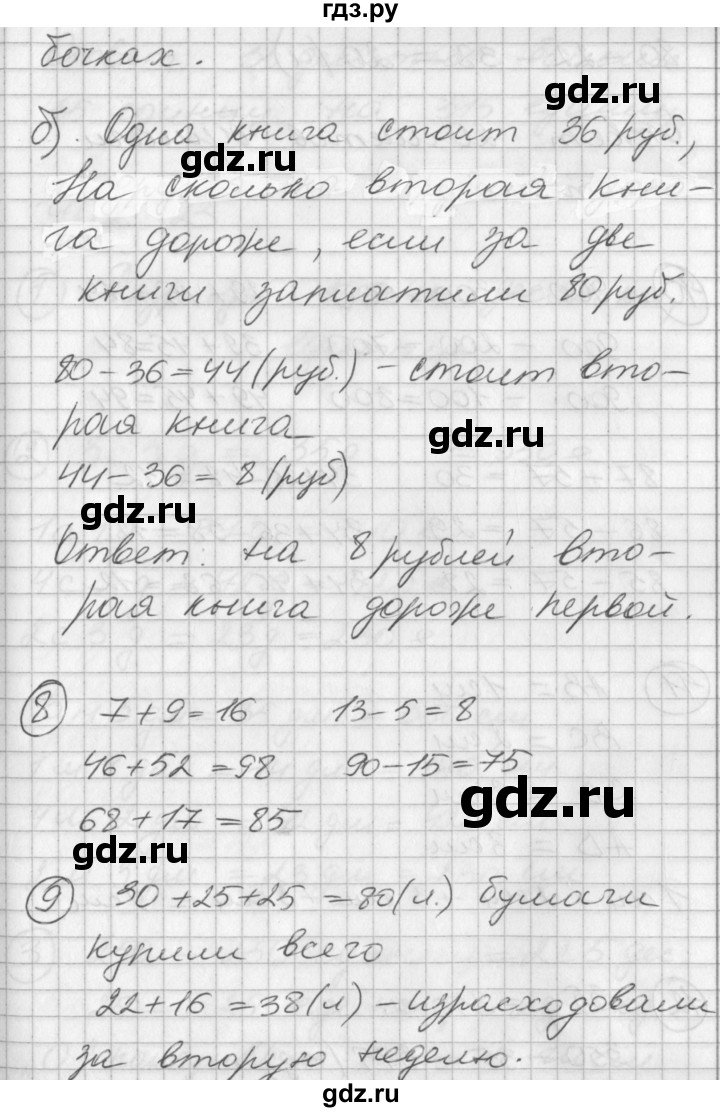 гдз.ру
бочках.
б). Одна книга стоит 36 руб.,
На сколько вторая кни-
га дороже, если за две
книги заплатили 80 руб.
80-36=44(руб.) - стоит вто-
рая книга
44-36= 8(руб)
Ответ: на 8 рублей вто-
рая книга дороже первой.
8 7+9=16 13-5=8
46+52=98 90-15=75
68+17=85
9 30+25+25=80(л.) бумаги
купили всего
22+16=38(л) - израсходовали
за вторую неделю.
gdz.ru
gdz.ru
gdz.ru
gdz.ru
gdz.ru
gdz.ru
gdz.ru
gdz.ru